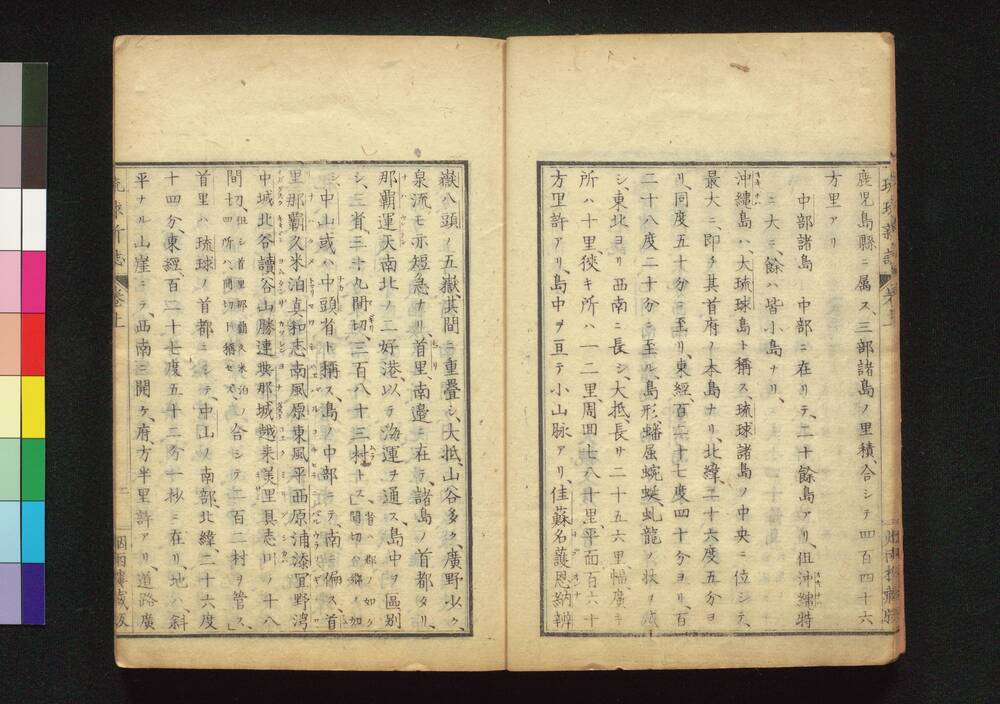 鹿児島縣ニ属ス、三部諸島ノ里積、合シテ四百四十六
方里アリ
中部諸島 中部ニ在リテ、二十餘島アリ、但沖縄特
ニ大ニ、餘ハ皆小島ナリ、
沖縄島ハ、大琉球島ト稱ス、琉球諸島ノ中央ニ位シテ、
最大ニ、即チ其首府ノ本島ナリ、北緯、二十六度五分ヨ
リ、同度五十分ニ至リ、東經、百二十七度四十分ヨリ、百
二十八度二十分ニ至ル、島形蟠屈蜿蜒、虬龍ノ状ヲ成
シ、東北ヨリ西南ニ長シ、大抵長サ二十五六里、幅廣キ
所ハ十里、狹キ所ハ一二里、周囬七八十里、平面百六十
方里許アリ、島中ヲ亘テ小山脉アリ、佳蘇名護恩納辨
嶽八頭ノ五嶽、其間ニ重疊シ、大抵、山谷多ク、廣野少ク、
泉流モ亦短急ナリ、首里、南邊ニ在テ、諸島ノ首都タリ、
那覇運天、南北ノ二好港、以テ海運ヲ通ス、島中ヲ區別
シ、三省、三十九間切、三百八十三村トス、
中山或ハ中頭省ト稱ス、島ノ中部ニテ、南ニ偏ス、首
里那覇久米泊真和志南風原東風平西原浦漆冝野湾
中城北谷讀谷山勝連與那城越来美里具志川ノ十八
間切、但シ首里那覇久米泊ノ四所ハ、間切ト稱セス、合シテ二百二村ヲ管ス、
首里ハ、琉球ノ首都ニシテ、中山ノ南部、北緯、二十六度
十四分、東經、百二十七度五十二分一抄ニ在リ、地、斜
平ナル山崖ニテ、西南ニ開ケ、府方半里許アリ、道路廣
卷上